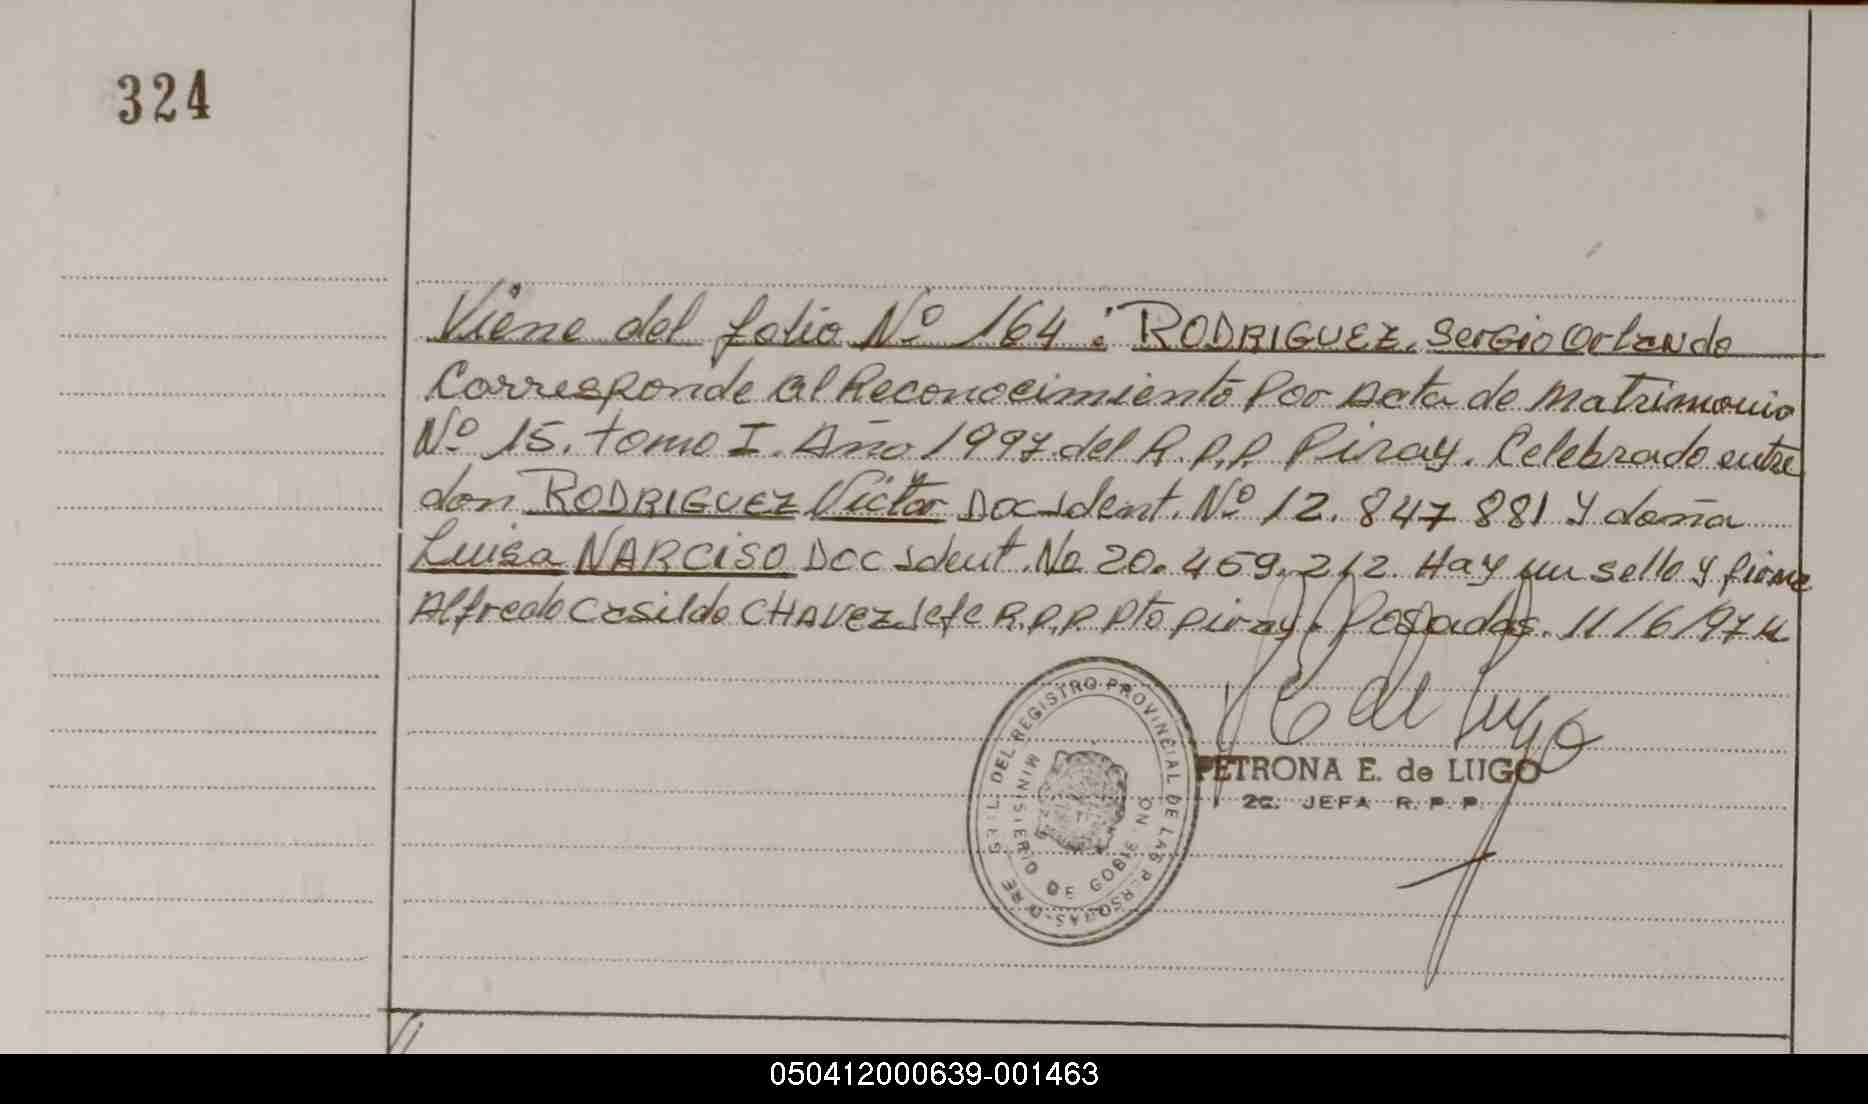 324
Viene del folio Nº 164: RODRIGUEZ, Sergio Orlando
Corresponde al Reconocimiento Por Acta de Matrimonio
Nº 15. tomo I. Año 1997. del R.P.P. Piray. Celebrado entre
don RODRIGUEZ Victor Doc Ident. Nº 12.847 881 y doña
Luisa NARCISO Doc Ident. No 20.469.212. Hay un sello y firma
Alfredo Casildo CHAVEZ Jefe R.P.P. Pto Piray. Posadas. 11/6/97
E de Lugo
DIRE GRAL. DEL REGISTRO PROVINCIAL DE LAS PERSONAS
MINISTERIO DE GOBIERNO
PETRONA E. de LUGO
2C. JEFA R. P. P.
050412000639-001463